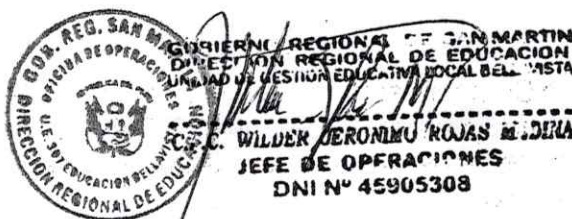 GOB. REG. SAN MA
OFICINA DE OPERACIONES
U.E. 307 EDUCACION BELLAVIST
DIRECCION REGIONAL DE EDUCACION
GOBIERNO REGIONAL DE SAN MARTIN
DIRECCION REGIONAL DE EDUCACION
UNIDAD DE GESTION EDUCATIVA LOCAL BELLAVISTA
WILDER JERONIMO ROJAS MEDINA
JEFE DE OPERACIONES
DNI Nº 45905308